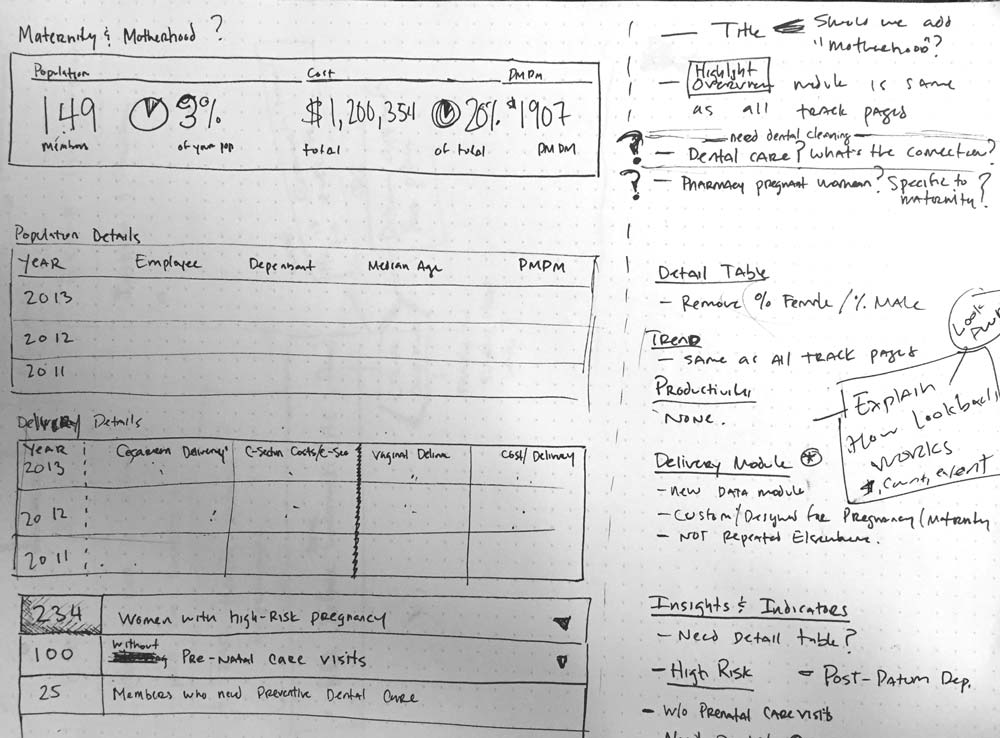 Maternity & Motherhood?
Population
Cost
PMPM
149
3%
$1,200,354
20%
$1907
members
of your pop
total
of total
PMPM
Population Details
YEAR Employee Dependant Median Age PMPM
2013
2012
2011
Delivery Details
YEAR Cesarean Delivery C-Section Costs/C-Sec Vaginal Deliv Cost/Delivery
2013
2012
2011
234 Women with High-Risk pregnancy
without
100 Pre-natal care visits
25 Members who need Preventive Dental Care
— Title Should we add
"Motherhood"?
— Highlight
Overview module is same
as all track pages
— need dental cleaning —
? — Dental care? What's the connection?
? — Pharmacy pregnant women? Specific to
maternity?
Detail Table
- Remove % Female / % Male
Trend
- Same as all track pages
Productivity
None.
Look
Explain
How lookback
works
$, count, event
Delivery Module *
- New Data module
- Custom/Designed for Pregnancy/Maternity
- NOT Repeated Elsewhere.
Insights & Indicators
- Need Detail table?
- High Risk
- Post-Partum Dep.
- w/o Prenatal Care visits